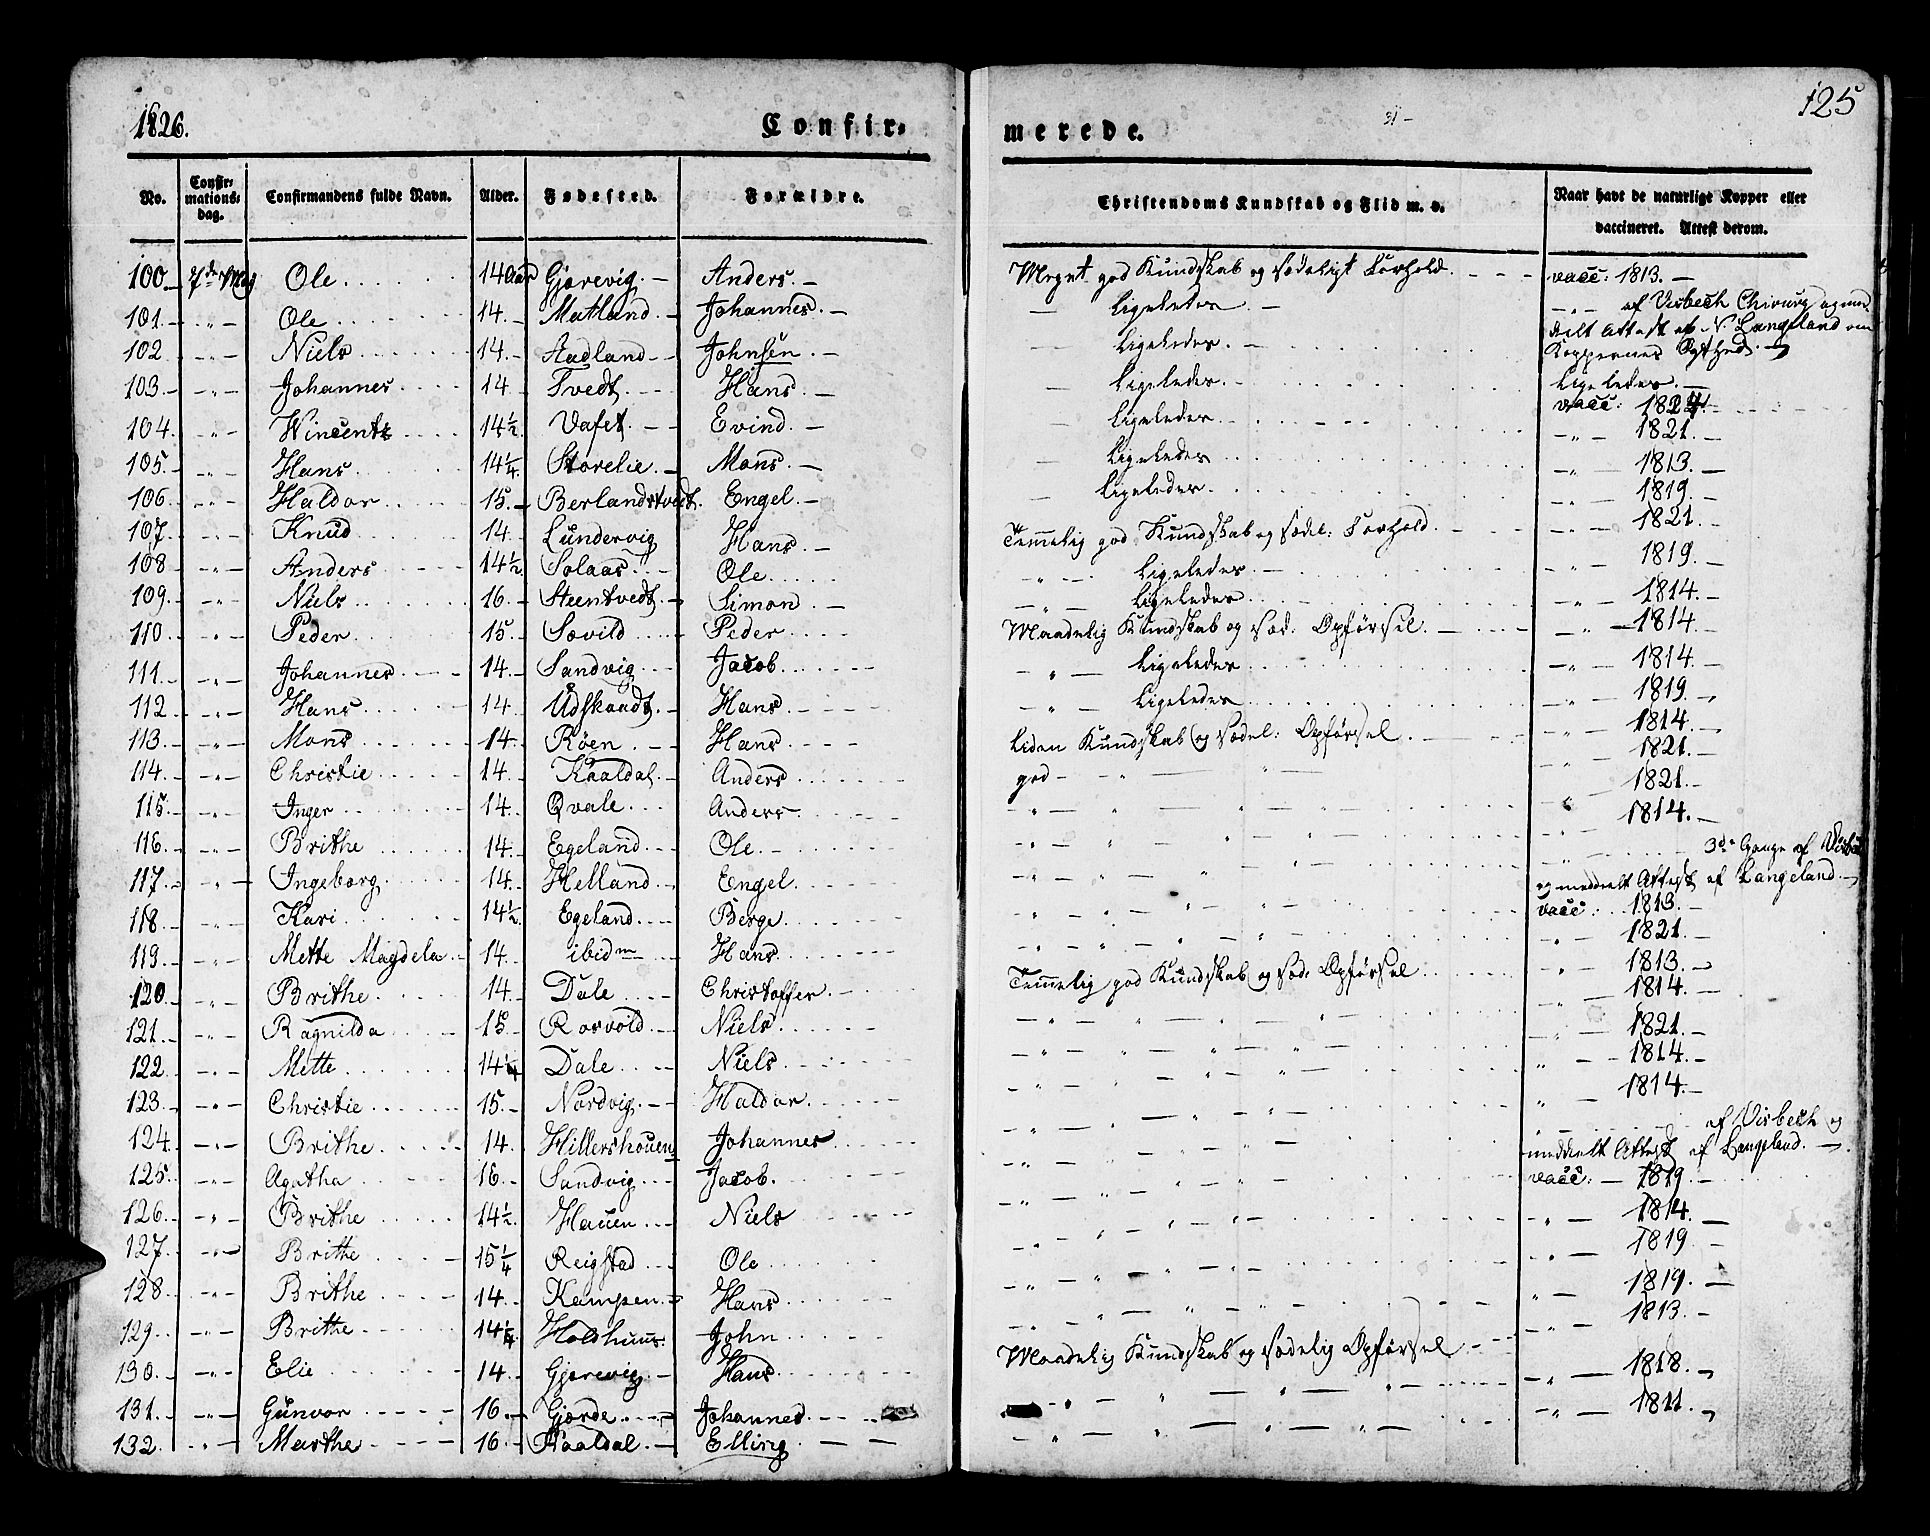 1826. Confir-
merede. 125
No. Confirmations-dag. Confirmandens fulde Navn. Alder. Fødested. Forældre.
Christendoms Kundskab og Flid m. v. Naar havt de naturlige Kopper eller vaccineret. Attest derom.
100 7de May Ole 14 Aar Gjærevig Anders Meget god Kundskab og sædeligt Forhold vacc: 1813.
101 Ole 14. Matland Johannes Ligeledes af Visbech Chirurg og med-
102 Niels 14. Aadland Johnsen Ligeledes deelt Attest af N. Langeland om
Koppernes Ægthed.
103 Johannes 14 Tvedt Hans. Ligeledes. Ligeledes.
104. Wincentz 14½ Vafet. Evind. Ligeledes vacc: 1824.
105. Hans 14¼ Storelie Mons. Ligeledes 1821.
106 Haldor 15. Berlandstvedt. Engel. Ligeledes. 1813.
107. Knud 14. Lundervig Hans Temmelig god Kundskab og sædel: Forhold. 1819.
108 Anders 14½ Solaas Ole Ligeledes 1821.
109. Niels 16. Steentvedt Simon Ligeledes 1819.
110. Peder 15. Sævild Peder Maadelig Kundskab og sæd: Opførsel 1814.
111. Johannes 14. Sandvig Jacob Ligeledes 1814.
112 Hans 14 Udskaadt. Hans Ligeledes 1814.
113. Mons 14. Røen Hans Liden Kundskab og sædel: Opførsel 1819.
114. Christie 14. Kaaldal Anders god 1814.
115. Inger 14. Qvale Anders 1821.
116. Brithe 14. Egeland Ole 1821.
117. Ingeborg 14. Helland Engel. 1814.
118. Kari 14½ Egeland Berge 3de Gange af Visbech
og meddeelt Attest af Langeland.
119. Mette Magdela 14. ibidm Hans vacc: 1813.
120. Brithe 14. Dale Christoffer Temmelig god Kundskab og sæd: Opførsel 1821.
121. Ragnilda 15 Rosvold Niels 1813.
122. Mette 14¼ Dale Niels 1814.
123. Christie 15. Nordvig Haldor 1821.
124. Brithe 14. Hillershouen Johannes 1814.
125. Agatha 16. Sandvig Jacob. 1814.
126. Brithe 14½ Hauen Niels af Visbech og
meddeelt Attest af Langeland.
127. Brithe 15¼ Reigstad Ole vacc: 1819
128. Brithe 14. Kampen Hans 1814.
129. Brithe 14¼ Holdhuus John 1819
130. Elie 14. Gjærevig Hans Maadelig Kundskab og sædelig Opførsel 1819.
1813.
131. Gunvor 16. Gjerde Johannes 1818.
132. Marthe 16. Kaaldal Elling 1811.